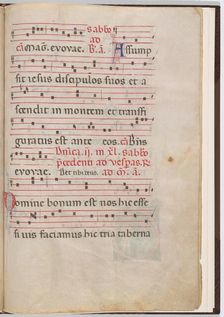 sabbo
ad
cā Mag. evovae. R. a. Assump
sit iesus discipulos suos et a
scendit in montem et transfi
guratus est ante eos. cā Bn̄s
Dnica .ij. in xl. sabbo
p̄cedenti ad vesꝑas. R.
evovae. ad m̄. a.
Domine bonum est nos hic esse
si vis faciamus hic tria taberna